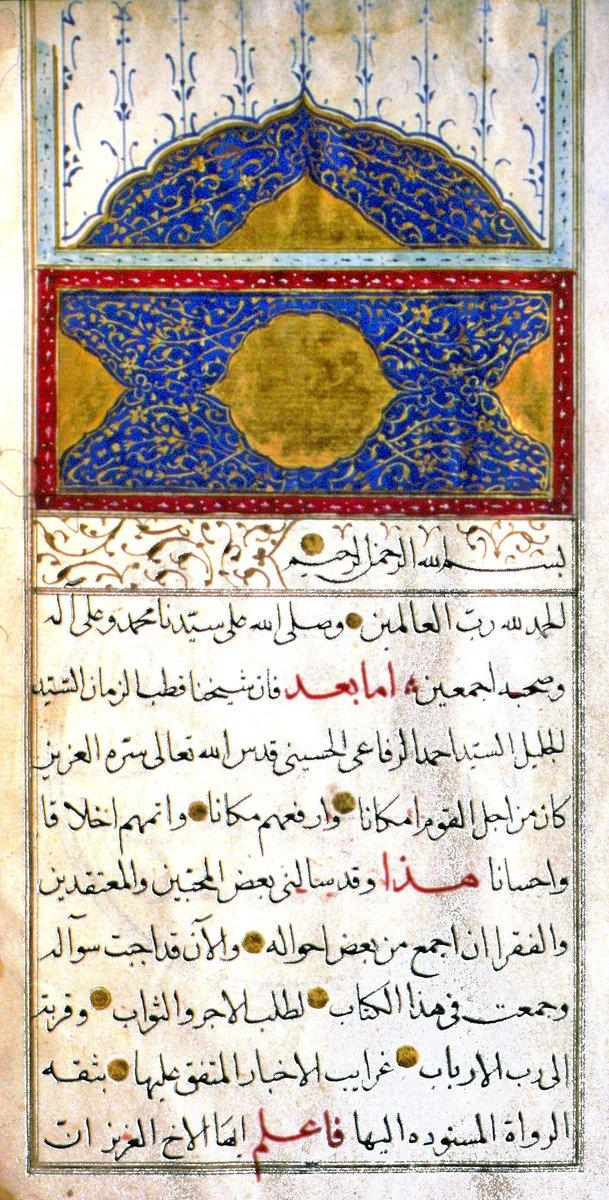 بسم الله الرحمن الرحيم
الحمد لله رب العالمين وصلى الله على سيدنا محمد وعلى آله
وصحبه اجمعين اما بعد فان شيخنا قطب الزمان السيد
الجليل السيد احمد الرفاعى الحسينى قدس الله تعالى سره العزيز
كان من اجل القوم امكانا وارفعهم مكانا واتمهم اخلاقا
واحسانا هذا وقد سالنى بعض المحبين والمعتقدين
والفقرا ان اجمع من بعض احواله والآن قد اجبت سوآله
وجمعت فى هذا الكتاب لطلب الاجر والثواب وقربة
الى رب الارباب غرايب الاخبار المتفق عليها بثقه
الرواة المسنوده اليها فاعلم ايها الاخ العزيز ان